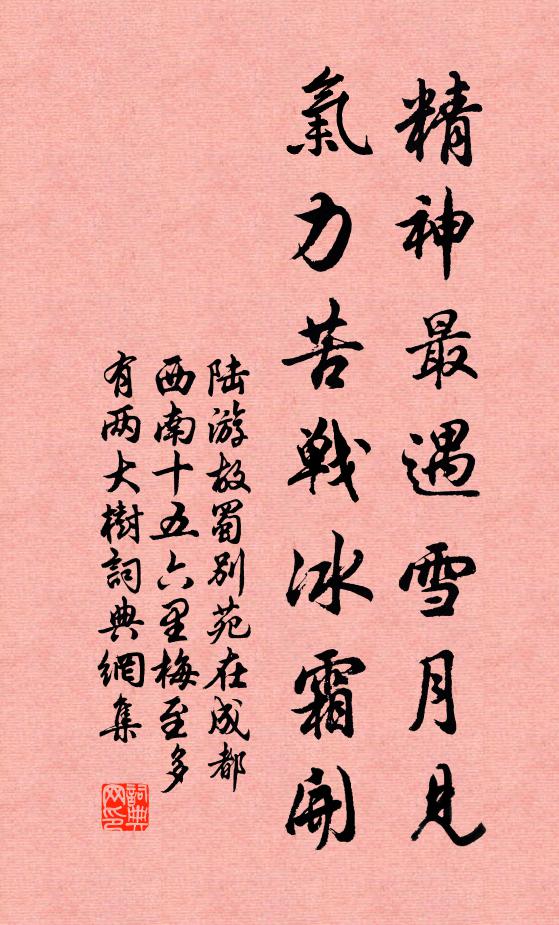 精神最遇雪月見
氣力苦戰冰霜開
陆游故蜀別苑在成都
西南十五六里梅至多
有两大樹詞典網集
詞典网印